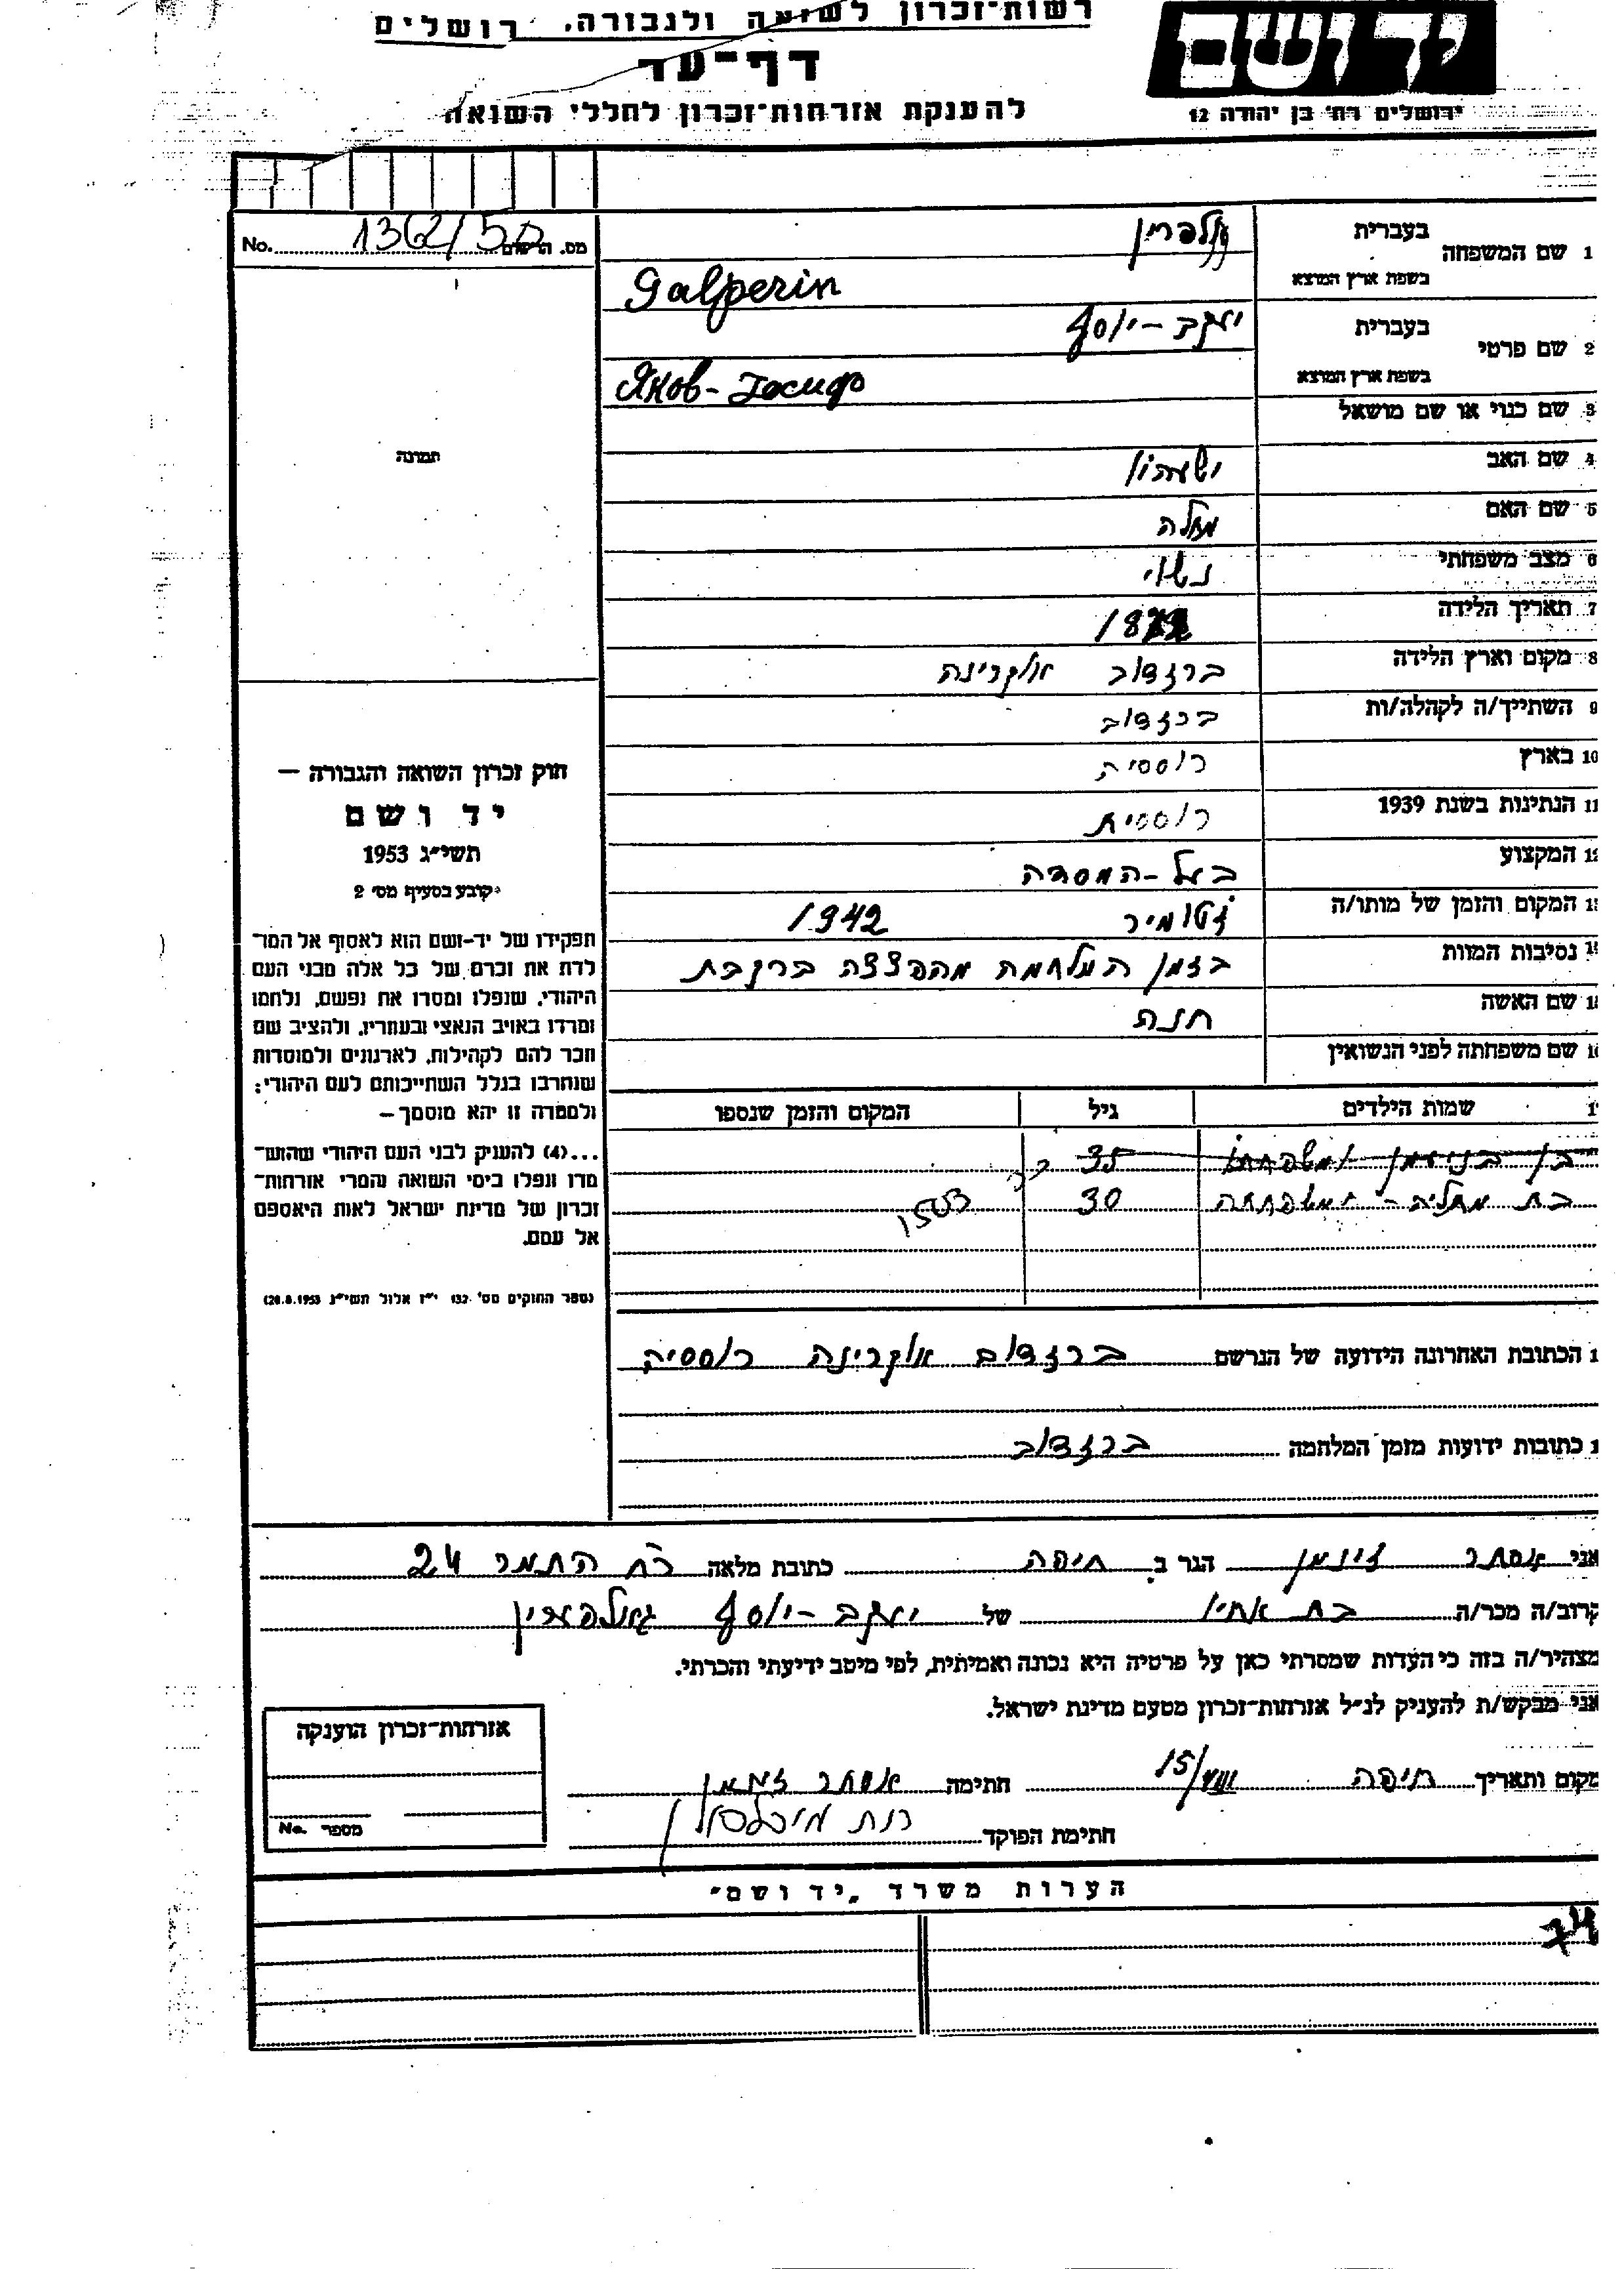 יד ושם
ירושלים רח׳ בן יהודה 12
רשות־זכרון לשואה ולגבורה, ירושלים
דף־עד
להענקת אזרחות־זכרון לחללי השואה
No. 1362/50 מס. הרישום
1 שם המשפחה בעברית גלפרין
בשפת ארץ המוצא Galperin
2 שם פרטי בעברית יעקב-יוסף
בשפת ארץ המוצא Яков-Iосиф
3 שם כנוי או שם מושאל
4 שם האב ישעיהו
5 שם האם
6 מצב משפחתי נשוי
7 תאריך הלידה
8 מקום וארץ הלידה ברזדוב אוקרינה
9 השתייך/ה לקהלה/ות ברזדוב
10 בארץ רוססיה
11 הנתינות בשנת 1939 רוססית
12 המקצוע בעל-המסדה
המקום והזמן של מותו/ה ז'טומיר 1942
נסיבות המוות בזמן המלחמה מהפצצה ברכבת
שם האשה חנה
שם משפחתה לפני הנשואין
שמות הילדים גיל המקום והזמן שנספו
בן בנימין ומשפחתו 35
בת מחליה - ומשפחתה 30
הכתובת האחרונה הידועה של הנרשם ברזדוב אוקרינה רוססיה
כתובות ידועות מזמן המלחמה ברזדוב
תמונה
חוק זכרון השואה והגבורה —
יד ושם
תשי״ג 1953
קובע בסעיף מס׳ 2
תפקידו של יד-ושם הוא לאסוף אל המו־
לדת את זכרם של כל אלה מבני העם
היהודי, שנפלו ומסרו את נפשם, נלחמו
ומרדו באויב הנאצי ובעוזריו, ולהציב שם
וזכר להם לקהילות, לארגונים ולמוסדות
שנחרבו בגלל השתייכותם לעם היהודי;
ולמטרה זו יהא מוסמך —
...(4) להעניק לבני העם היהודי שהוש־
מדו ונפלו בימי השואה והמרי אזרחות־
זכרון של מדינת ישראל לאות היאספם
אל עמם.
(ספר החוקים מס׳ 132 י״ז אלול תשי״ג 28.8.1953)
אני אסתר זיגמן הגר ב חיפה כתובת מלאה רח התמר 24
קרוב/ה מכר/ה בת אחיו של יעקב-יוסף גאלפרין
מצהיר/ה בזה כי העדות שמסרתי כאן על פרטיה היא נכונה ואמיתית, לפי מיטב ידיעתי והכרתי.
אני מבקש/ת להעניק לנ״ל אזרחות־זכרון מטעם מדינת ישראל.
מקום ותאריך חיפה 15/VIII חתימה אסתר זיגמן
חתימת הפוקד רות מיכלסון
אזרחות־זכרון הוענקה
מספר No.
הערות משרד „יד ושם״
74